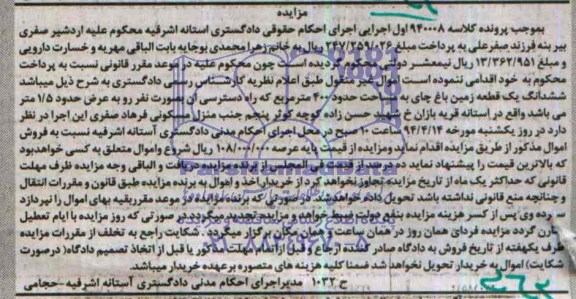 مزایده
بموجب پرونده کلاسه ۹۴۰۰۰۸ اول اجرایی اجرای احکام حقوقی دادگستری آستانه اشرفیه محکوم علیه اردشیر صفری
بیر بنه فرزند صفرعلی به پرداخت مبلغ ۲۴۷/۲۵۹/۰۲۶ ریال به خانم زهرا محمدی بوجایه بابت الباقی مهریه و خسارت دارویی
و مبلغ ۱۳/۳۶۲/۹۵۱ ریال نیمعشر دولتی محکوم گردیده است چون محکوم علیه در موعد مقرر قانونی نسبت به پرداخت
محکوم به خود اقدامی ننموده است اموال غیر منقول طبق اعلام نظریه کارشناس رسمی دادگستری به شرح ذیل میباشد
ششدانگ یک قطعه زمین باغ چای به مساحت حدود ۴۰۰ مترمربع که راه دسترسی آن بصورت نفر رو به عرض حدود ۱/۵ متر
می باشد واقع در آستانه قریه بازان خ شهید حسن زاده کوچه کوثر پنجم جنب منزل مسکونی فرهاد صفری این اجرا در نظر
دارد در روز یکشنبه مورخه ۹۴/۴/۱۴ ساعت ۱۰ صبح در محل اجرای احکام مدنی دادگستری آستانه اشرفیه نسبت به فروش
اموال مذکور از طریق مزایده اقدام نماید ومزایده از قیمت پایه عرصه ۱۰۸/۰۰۰/۰۰۰ ریال شروع واموال متعلق به کسی خواهدبود
که بالاترین قیمت را پیشنهاد نماید ده درصد از قیمت فی المجلس از برنده مزایده دریافت و الباقی وجه مزایده ظرف مهلت
قانونی که حداکثر یک ماه از تاریخ مزایده تجاوز نخواهد کرد از خریدار اخذ و اموال به برنده مزایده طبق قانون و مقررات انتقال
و چنانچه منع قانونی نداشته باشد تحویل داده خواهدشد. در صورتی که برنده مزایده در موعد مقرر بقیه بهای اموال را نپردازد
سپرده وی پس از کسر هزینه مزایده بنفع دولت ضبط خواهد و مزایده تجدید میگردد در صورتی که روز مزایده با ایام تعطیل
تقارن گردد مزایده فردای همان روز در همان ساعت و همان مکان برگزار میگردد. شکایت راجع به تخلف از مقررات مزایده
ظرف یکهفته از تاریخ فروش به دادگاه صادر کننده ارجاع و قبل از اتمام مهلت مذکور یا قبل از اتخاذ تصمیم دادگاه( درصورت
شکایت) اموال به خریدار تحویل نخواهد شد ضمنا کلیه هزینه های متصوره برعهده خریدار میباشد.
ح ۱۰۳۲ مدیراجرای احکام مدنی دادگستری آستانه اشرفیه-حجامی